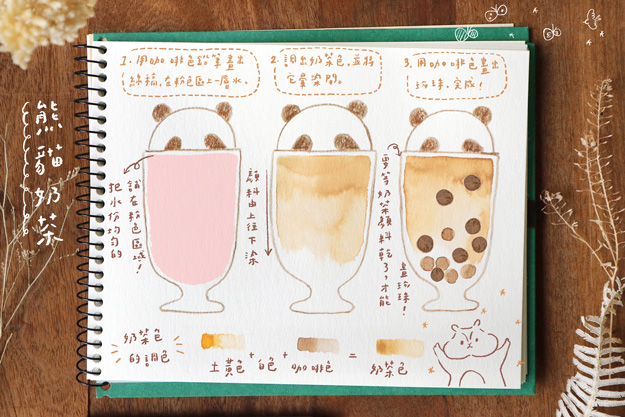 熊貓奶茶
1. 用咖啡色鉛筆畫出
線稿,在粉色區上一層水。
2. 調出奶茶色,並將
它暈染開。
3. 用咖啡色畫出
珍珠,完成!
把水份均勻的
鋪在粉色區域!
顏料由上往下染
要等奶茶顏料乾了,才能
畫珍珠!
奶茶色
的調色
土黃色+白色+咖啡色=奶茶色